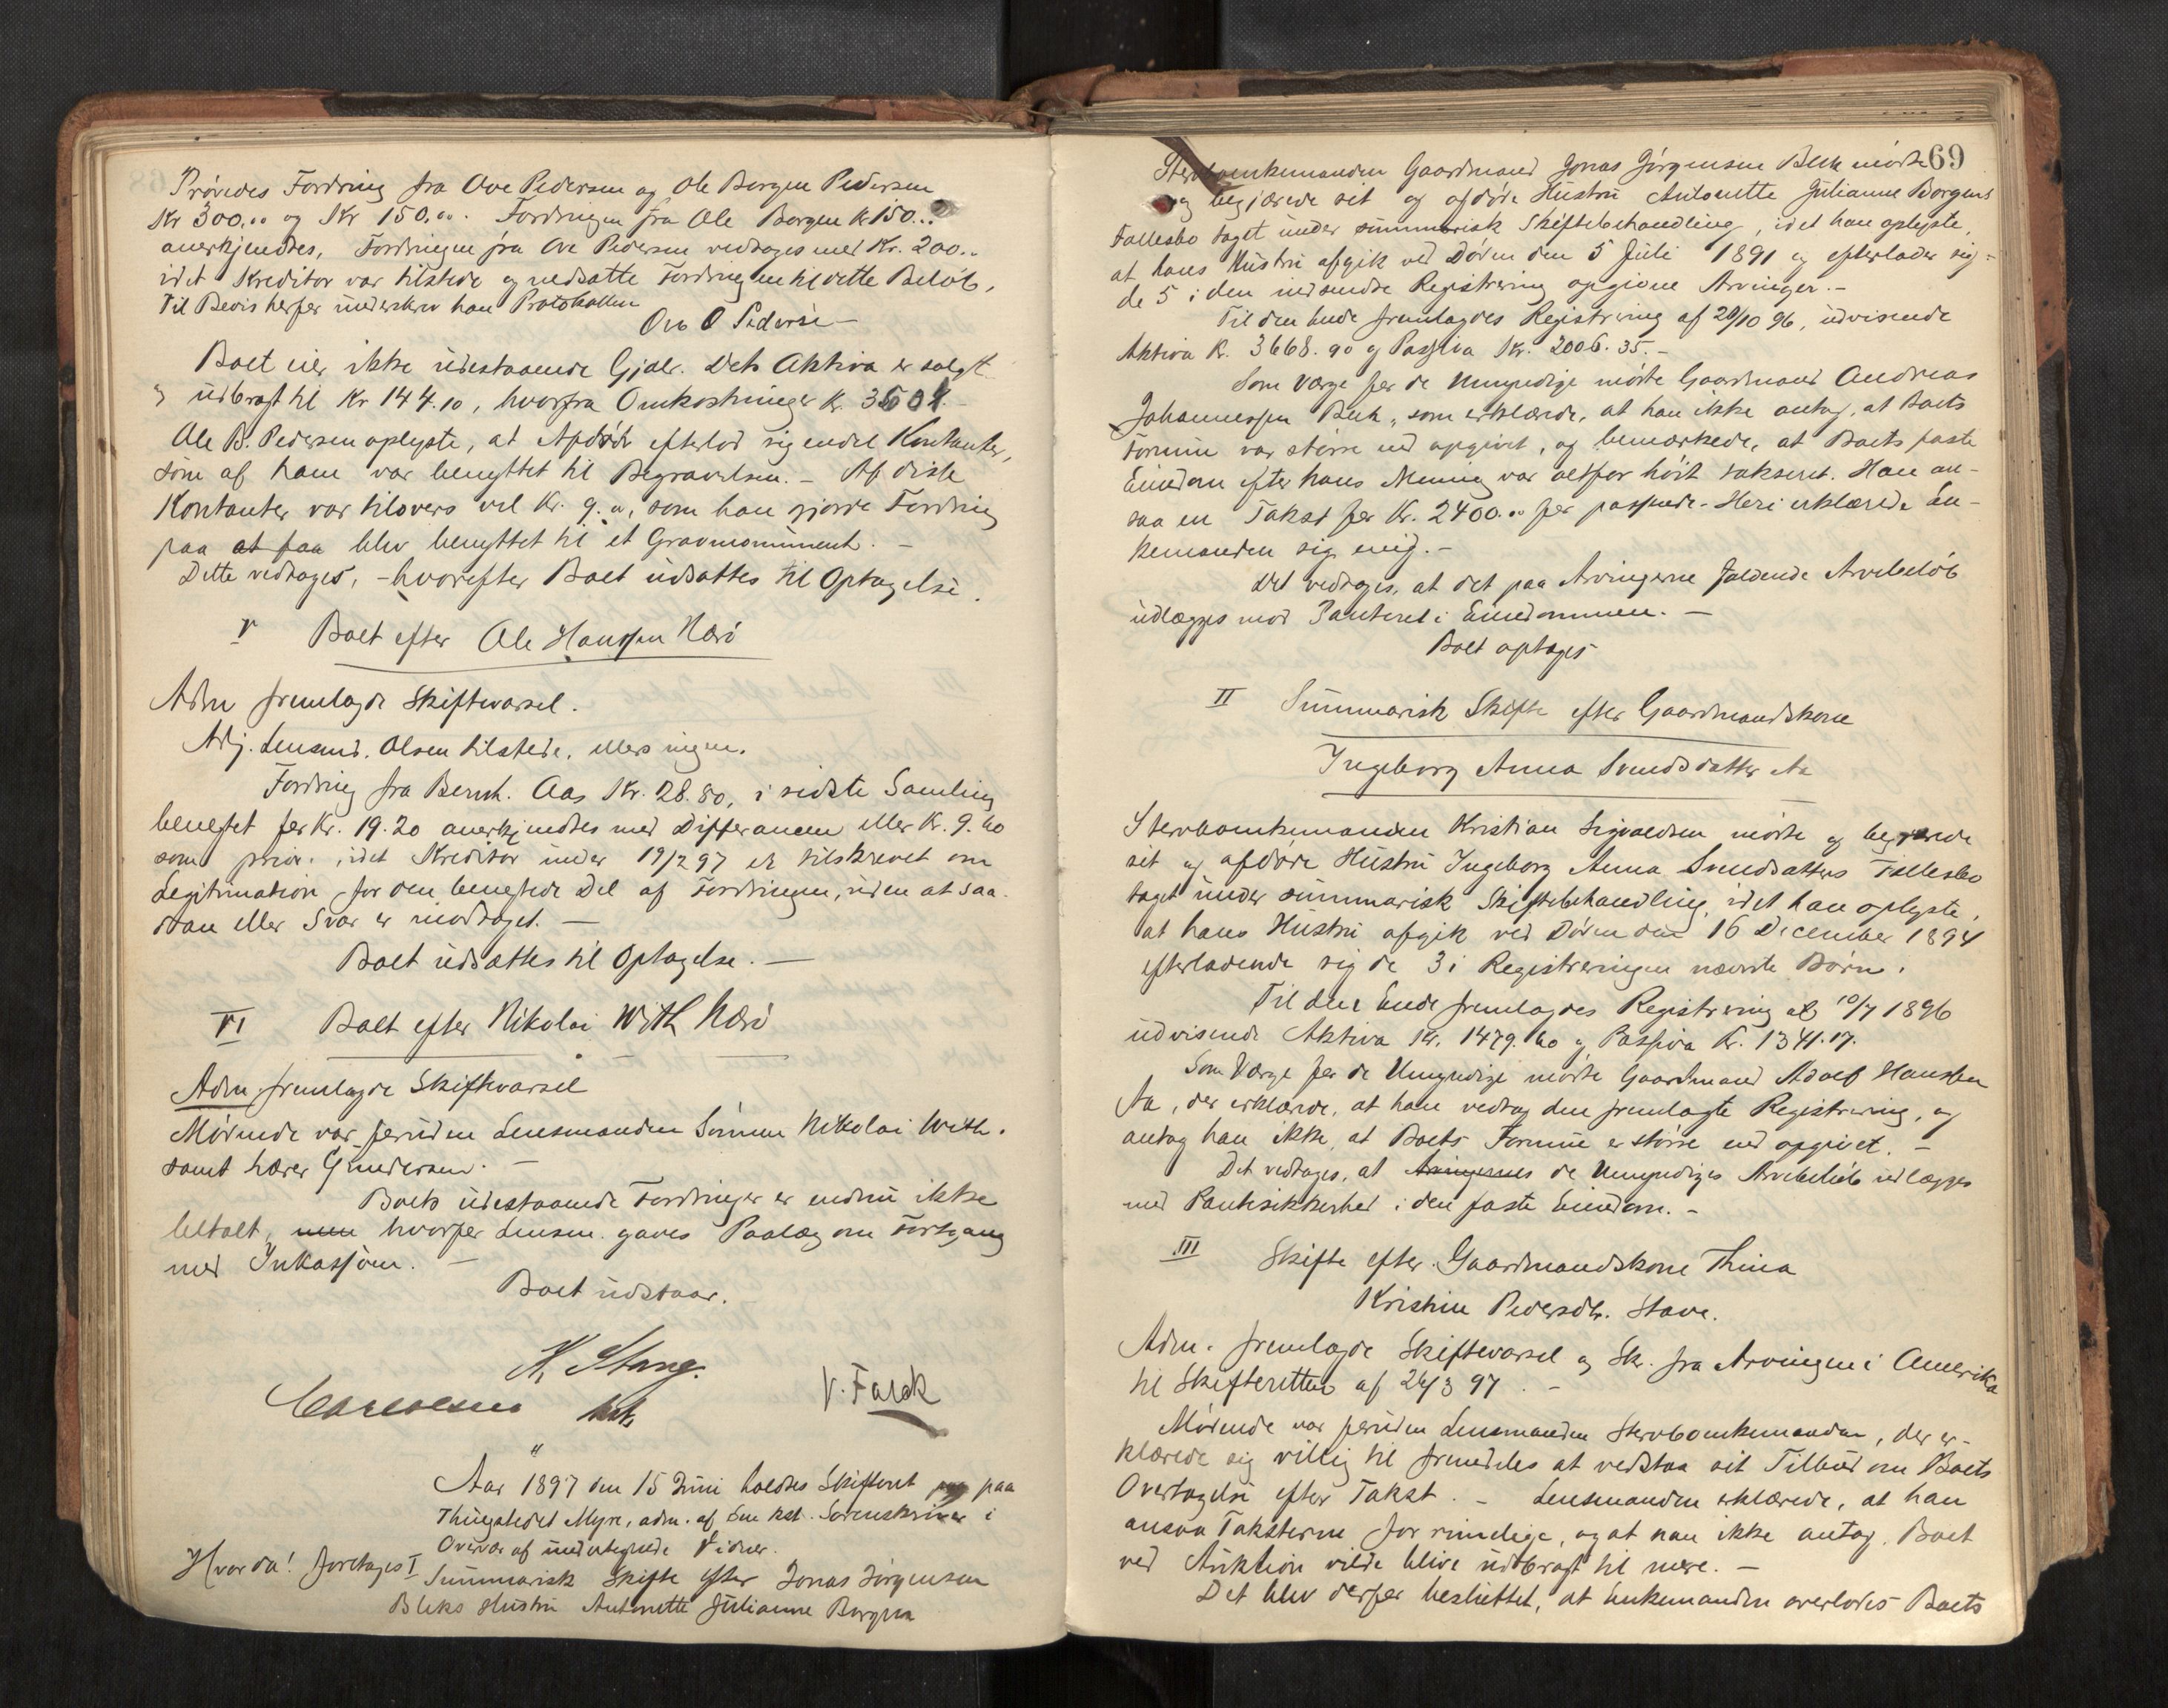 Prøvedes Fordring fra Ove Pedersen og Ole Borgen Pedersen
Kr 300.00 og Kr 150.00. Fordringen fra Ole Borgen Kr 150..
anerkjendtes, Fordringen fra Ove Pedersen vedtages med Kr. 200..
idet Kreditor var tilstede og nedsatte Fordringen til dette Beløb,
Til Bevis herfor underskrev han Protokollen
Ove O Pederse
Boet eier ikke udestaaende Gjæld. Dets Aktiva er solgt
og udbragt til Kr 144.10, hvorfra Omkostninger Kr.
Ole B. Pedersen oplyste, at Afdøde efterlod sig endel Kontanter,
som af ham var benyttet til Begravelsen. – Af disse
Kontanter var tilovers vel Kr. 9.00, som han gjorde Fordring
paa at faa blev benyttet til et Gravmonument. –
Dette vedtages, – hvorefter Boet udsattes til Optagelse.
V Boet efter Ole Hanssen Nærø
Adm fremlagde Skiftevarsel.
Adj. Lensmd. Olsen tilstede, ellers ingen.
Fordring fra Bernh. Aas Kr. 28.80, i sidste Samling
benegtet for Kr. 19.20 anerkjendtes med Differancen eller Kr. 9.60
som prior. idet Kreditor under 19/2 97 er tilskrevet om
Legitimation for den benegtede Del af Fordringen, uden at saa-
dan eller Svar er modtaget. –
Boet udsattes til Optagelse. –
VI Boet efter Nikolai With Nærø
Adm fremlagde Skiftevarsel
Mødende var foruden Lensmanden Sønnen Nikolai With.
samt Gundersen. –
Boets udestaaende Fordringer er endnu ikke
betalt, men hvorfor Lensm. gaves Paalæg om Fortgang
med Inkassoen. –
Boet udstaar.
K. Stang.
kst.
V. Falck
Aar 1897 den 15 Juni holdtes Skifteret paa
Thingstedet Myre, adm. af den kst. Sorenskriver i
Overvær af undertegnede Vidner.
Hvorda! foretages I
Summarisk Skifte efter Jonas Jørgensen
Bleks Hustru Antonette Julianne Borgen
69
Stervboenkemanden Gaardmand Jonas Jørgensen Blek mødte
og begjærede sit og afdøde Hustru Antonette Julianne Borgens
Fællesbo taget under summarisk Skiftebehandling, idet han oplyste,
at hans Hustru afgik ved Døden den 5 Juli 1891 og efterlader sig
de 5 i den indsendte Registrering opgivne Arvinger. –
Til den Ende fremlagdes Registrering af 20/10 96, udvisende
Aktiva Kr. 3668.90 og Passiva Kr. 2006.35. –
Som Værge for de Umyndige mødte Gaardmand Andreas
Johannessen Blek, som erklærede, at han ikke antog, at Boets
Formue var større end opgivet, og bemærkede, at Boets faste
Eiendom efter hans Mening var altfor høit takseret. Han an-
saa en Takst for Kr. 2400.00 for passende. Heri erklærede En-
kemanden sig enig. –
Det vedtages, at det paa Arvingerne faldende Arvebeløb
udlægges mod Panteret i Eiendommen. –
Boet optages
II Summarisk Skifte efter Gaardmandskone
Ingeborg Anna Svendsdatter Aa
Stervboenkemanden Kristian Sigvaldsen mødte og begjærede
sit og afdøde Hustru Ingeborg Anna Svendsdatters Fællesbo
taget under summarisk Skiftebehandling, idet han oplyste,
at hans Hustru afgik ved Døden den 16 December 1894
efterladende sig de 3 i Registreringen nævnte Børn.
Til den Ende fremlagdes Registrering af 10/7 1896
udvisende Aktiva Kr. 1479.60 og Passiva Kr. 1341.17.
Som Værge for de Umyndige mødte Gaardmand Adolf Hanssen
Aa, der erklærede, at han vedtog den fremlagte Registrering, og
antog han ikke, at Boets Formue er større end opgivet. –
Det vedtages, at Arvingernes de Umyndiges Arvebeløb udlægges
med Pantesikkerhed i den faste Eiendom. –
III Skifte efter Gaardmandskone Thina
Kristine Pedersdtr. Stave.
Adm. fremlagde Skiftevarsel og Skr. fra Arvingen i Amerika
til Skifteretten af 26/3 97. –
Mødende var foruden Lensmanden Stervboenkemanden, der er-
klærede sig villig til fremdeles at vedstaa sit Tilbud om Boets
Overtagelse efter Takst. – Lensmanden erklærede, at han
ansaa Taksterne for rimelige, og at han ikke antog, Boet
ved Auktion vilde blive udbragt til mere. –
Det blev derfor besluttet, at Enkemanden overlodes Boets